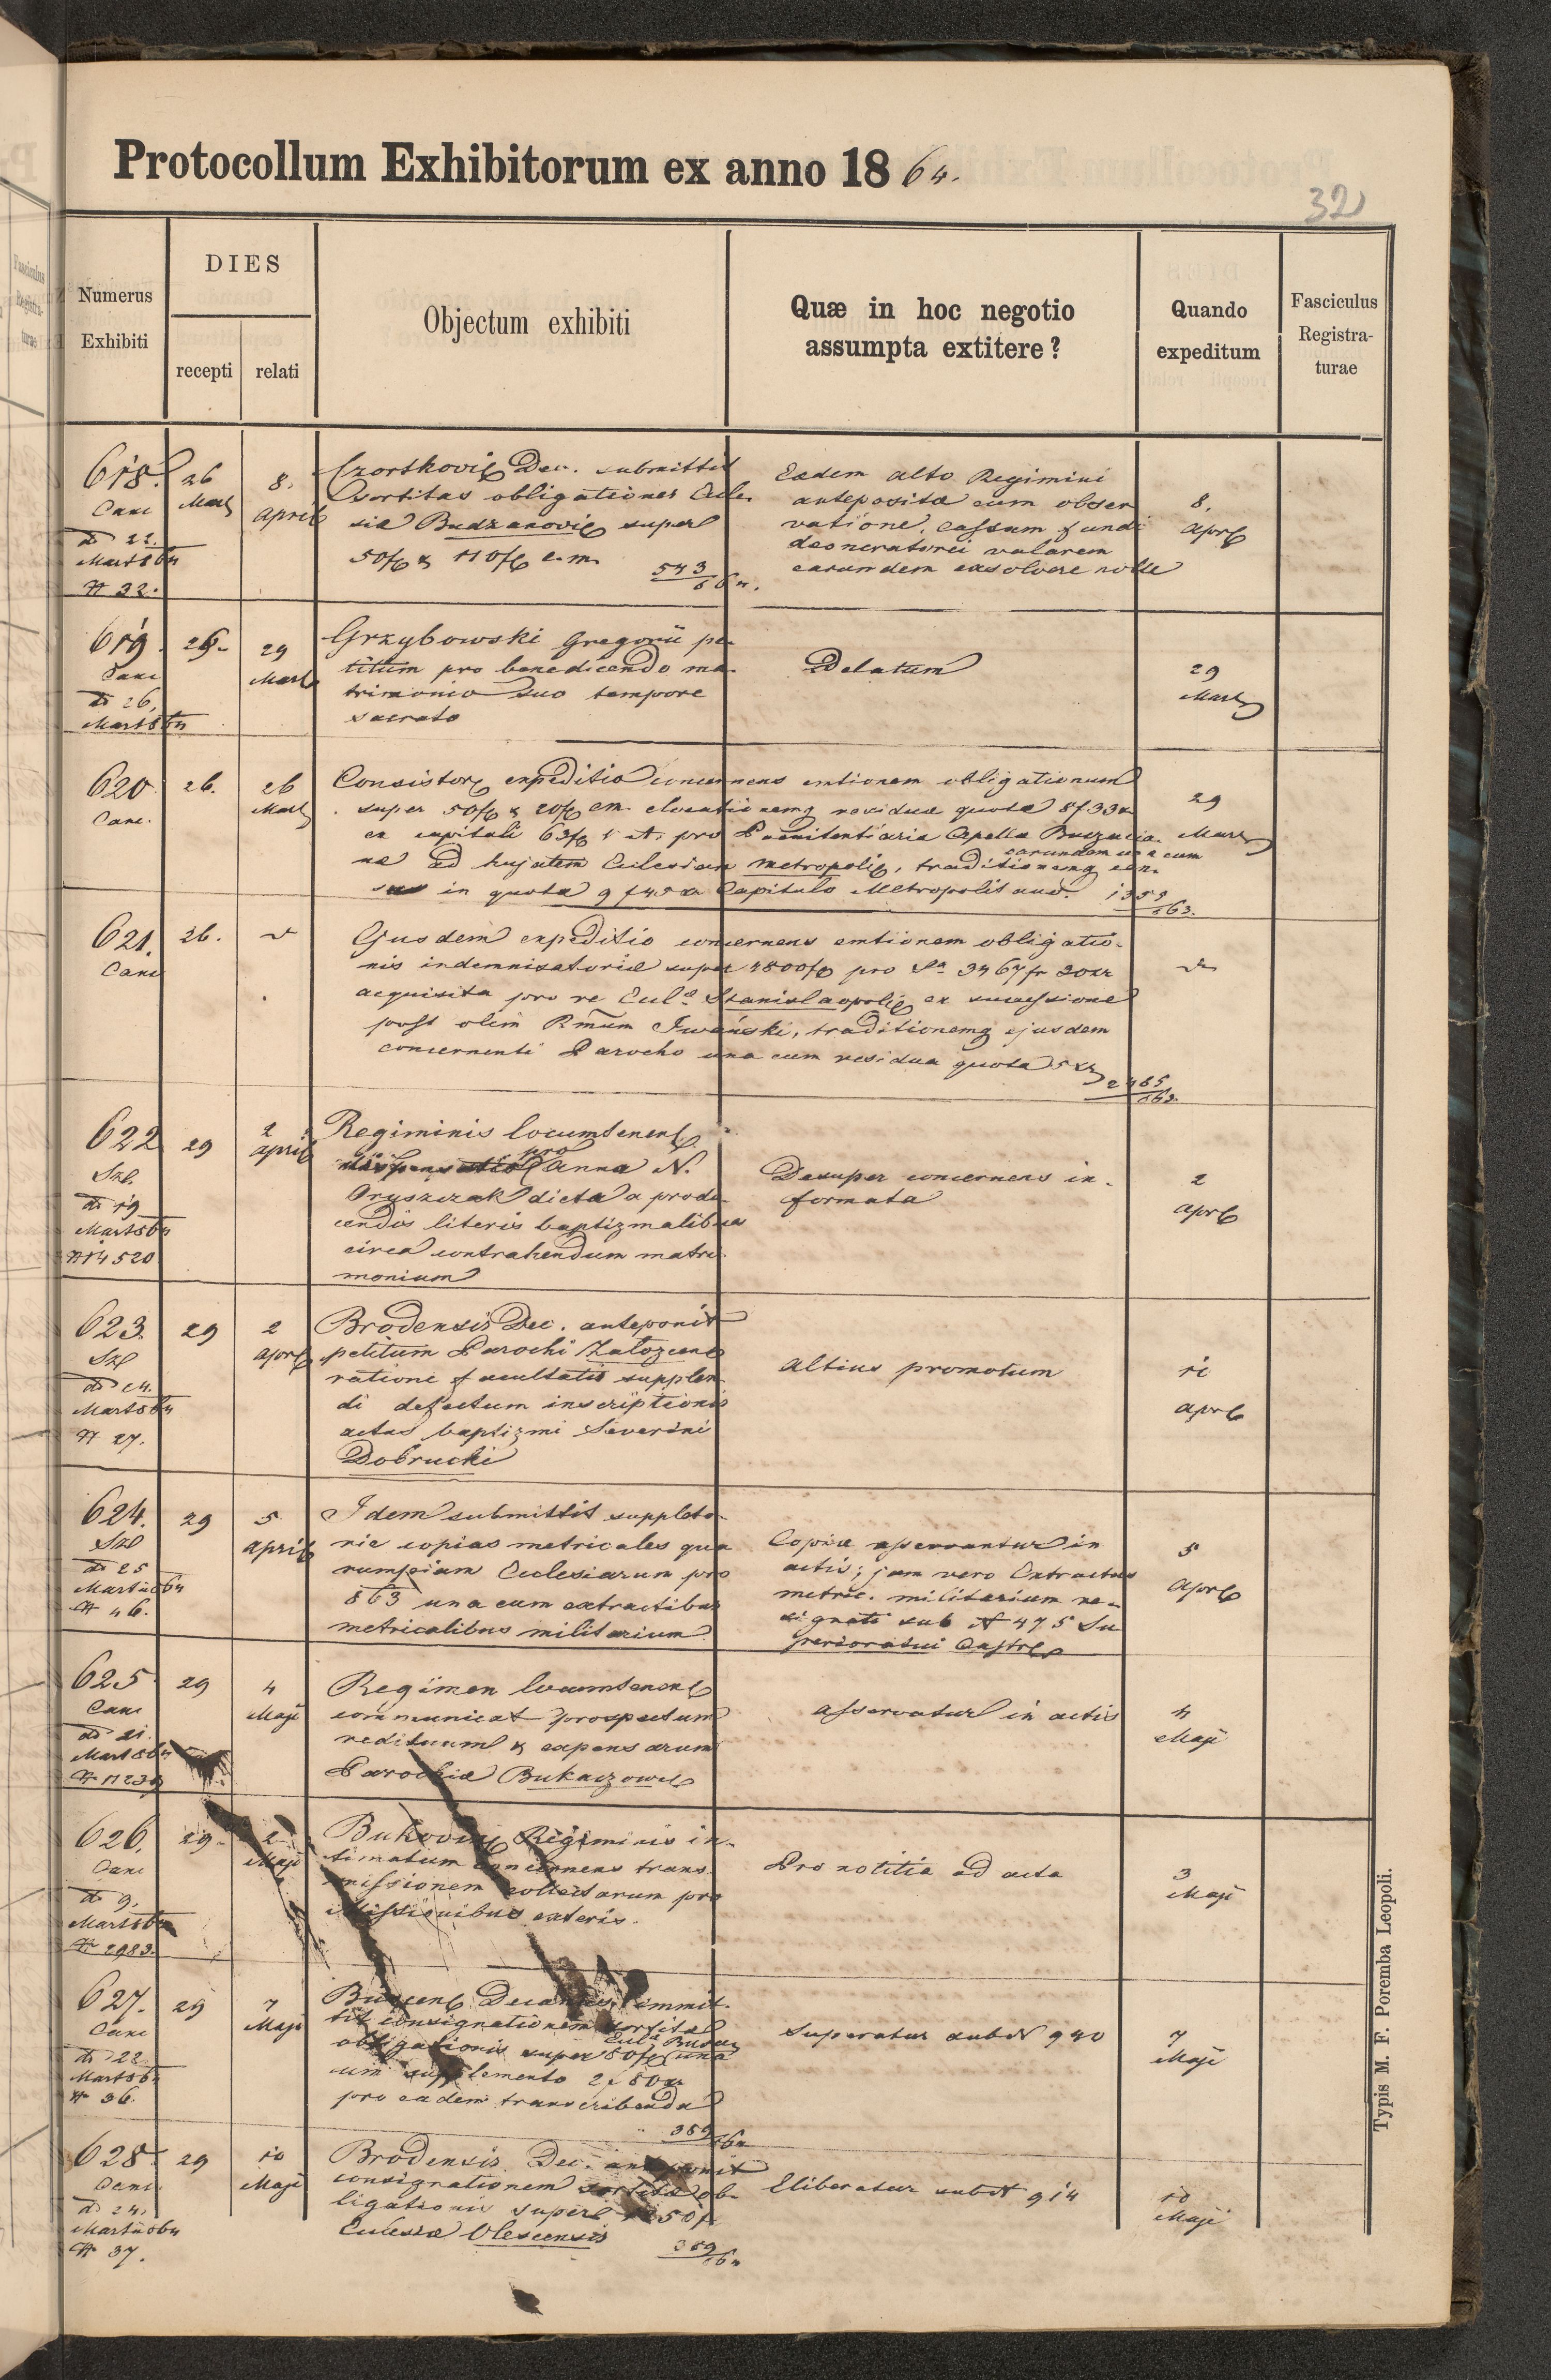 Protocollum Exhibitorum ex anno 1864.
32
Numerus
Exhibiti
DIES
recepti
relati
Objectum exhibiti
Quæ in hoc negotio
assumpta extitere?
Quando
expeditum
Fasciculus
Registra-
turae
618.
Canc
22.
Mart 864
N 32.
26
Mart
8.
April
Czortkovi Dec. submittit
sortitas obligationes Eccle-
siæ Budzanovi super
50f & 110f c.m.
543/864.
Eædem alto Regimini
antepositæ cum obser
vatione, cassam fundi
deoneratorii valorem
earundem exsolvere nolle
8.
Apr
619.
Canc
26.
Mart 864
26.
29
Mart
Grzybowski Gregorii pe-
titum pro benedicendo ma-
trimonio suo tempore
sacrato
Delatum
29
Mart
620
Canc.
26.
26
Mart
Consistor expeditio concernens emtionem obligationum
super 50f & 20f cm. residuæ quotæ 8f 33x
ex capitali 63f pro Pœnitentiaria Capella Buczacia-
na ad hujatem Ecclesiam metropoli, traditionemq
earundem una cum
in quota 9f 45x Capitulo Metropolitano.
1353/863.
29
Mart
621.
Canc
26.
Ejusdem expeditio concernens emtionem obligatio-
nis indemnisatoriæ super 4800f pro Sa 3467f 20xr
acquisita pro re Eccl Stanislaopoli ex successione
post olim Rmum Iwański, traditionemq ejusdem
concernenti Parocho una cum residua quota 5x
2485/863.
622
Szl.
19
Mart 864
N 14520
29
2
April
Regiminis locumtenent
pro
Anna N.
Oryszczak dicta a produ-
cendis literis baptizmalibus
circa contrahendum matri-
monium
Desuper concernens in-
formata
2
Apr
623.
Szl
Mart 864
N 27.
29
2
Apr
Brodensis Dec. anteponit
petitum Parochi Załozcen
ratione facultatis supplen
di defectum inscriptionis
actus baptizmi Severini
Dobrucki
Altius promotum
Apr
624.
Szl
25
Martii 864
N 46.
29
5
April
Idem submittit suppleto-
rie copias metricales qua
rumpiam Ecclesiarum pro
863 una cum extractibus
metricalibus militarium
Copiæ asservantur in
actis; jam vero Extractus
metric. militarium re-
signati sub N 475 Su
perioratui Castr
5
Apr
625
Canc
21.
Mart 864
29
4
Maji
Regimen locumtenent
communicat prospectum
redituum & expensarum
Parochiæ Bukaczow
Asservatur in actis
4
Maji
626.
Canc
9.
Mart 864
N 2983.
29.
2
Maji
Bukovin Regiminis in-
timatum concernens trans-
missionem collectarum pro
Missionibus exteris.
Pro notitia ad acta
3
Maji
627.
Canc
22.
Mart 864
N 36.
29
7
Maji
Buscen Decanus submit-
tit consignationem sortitæ
Eccla Buscen
obligationis super 50f una
cum supplemento 2f 80x
pro eadem transcribenda
389/864
Superatur sub N 940
7
Maji
628.
Canc
24.
Martii 864
N 37.
29
10
Maji
Brodensis Dec. anteponit
consignationem sortitæ ob-
ligationis super 50f
Ecclesiæ Olescensis
389/864
Eliberatur sub N 914
10
Maji
Typis M. F. Poremba Leopoli.